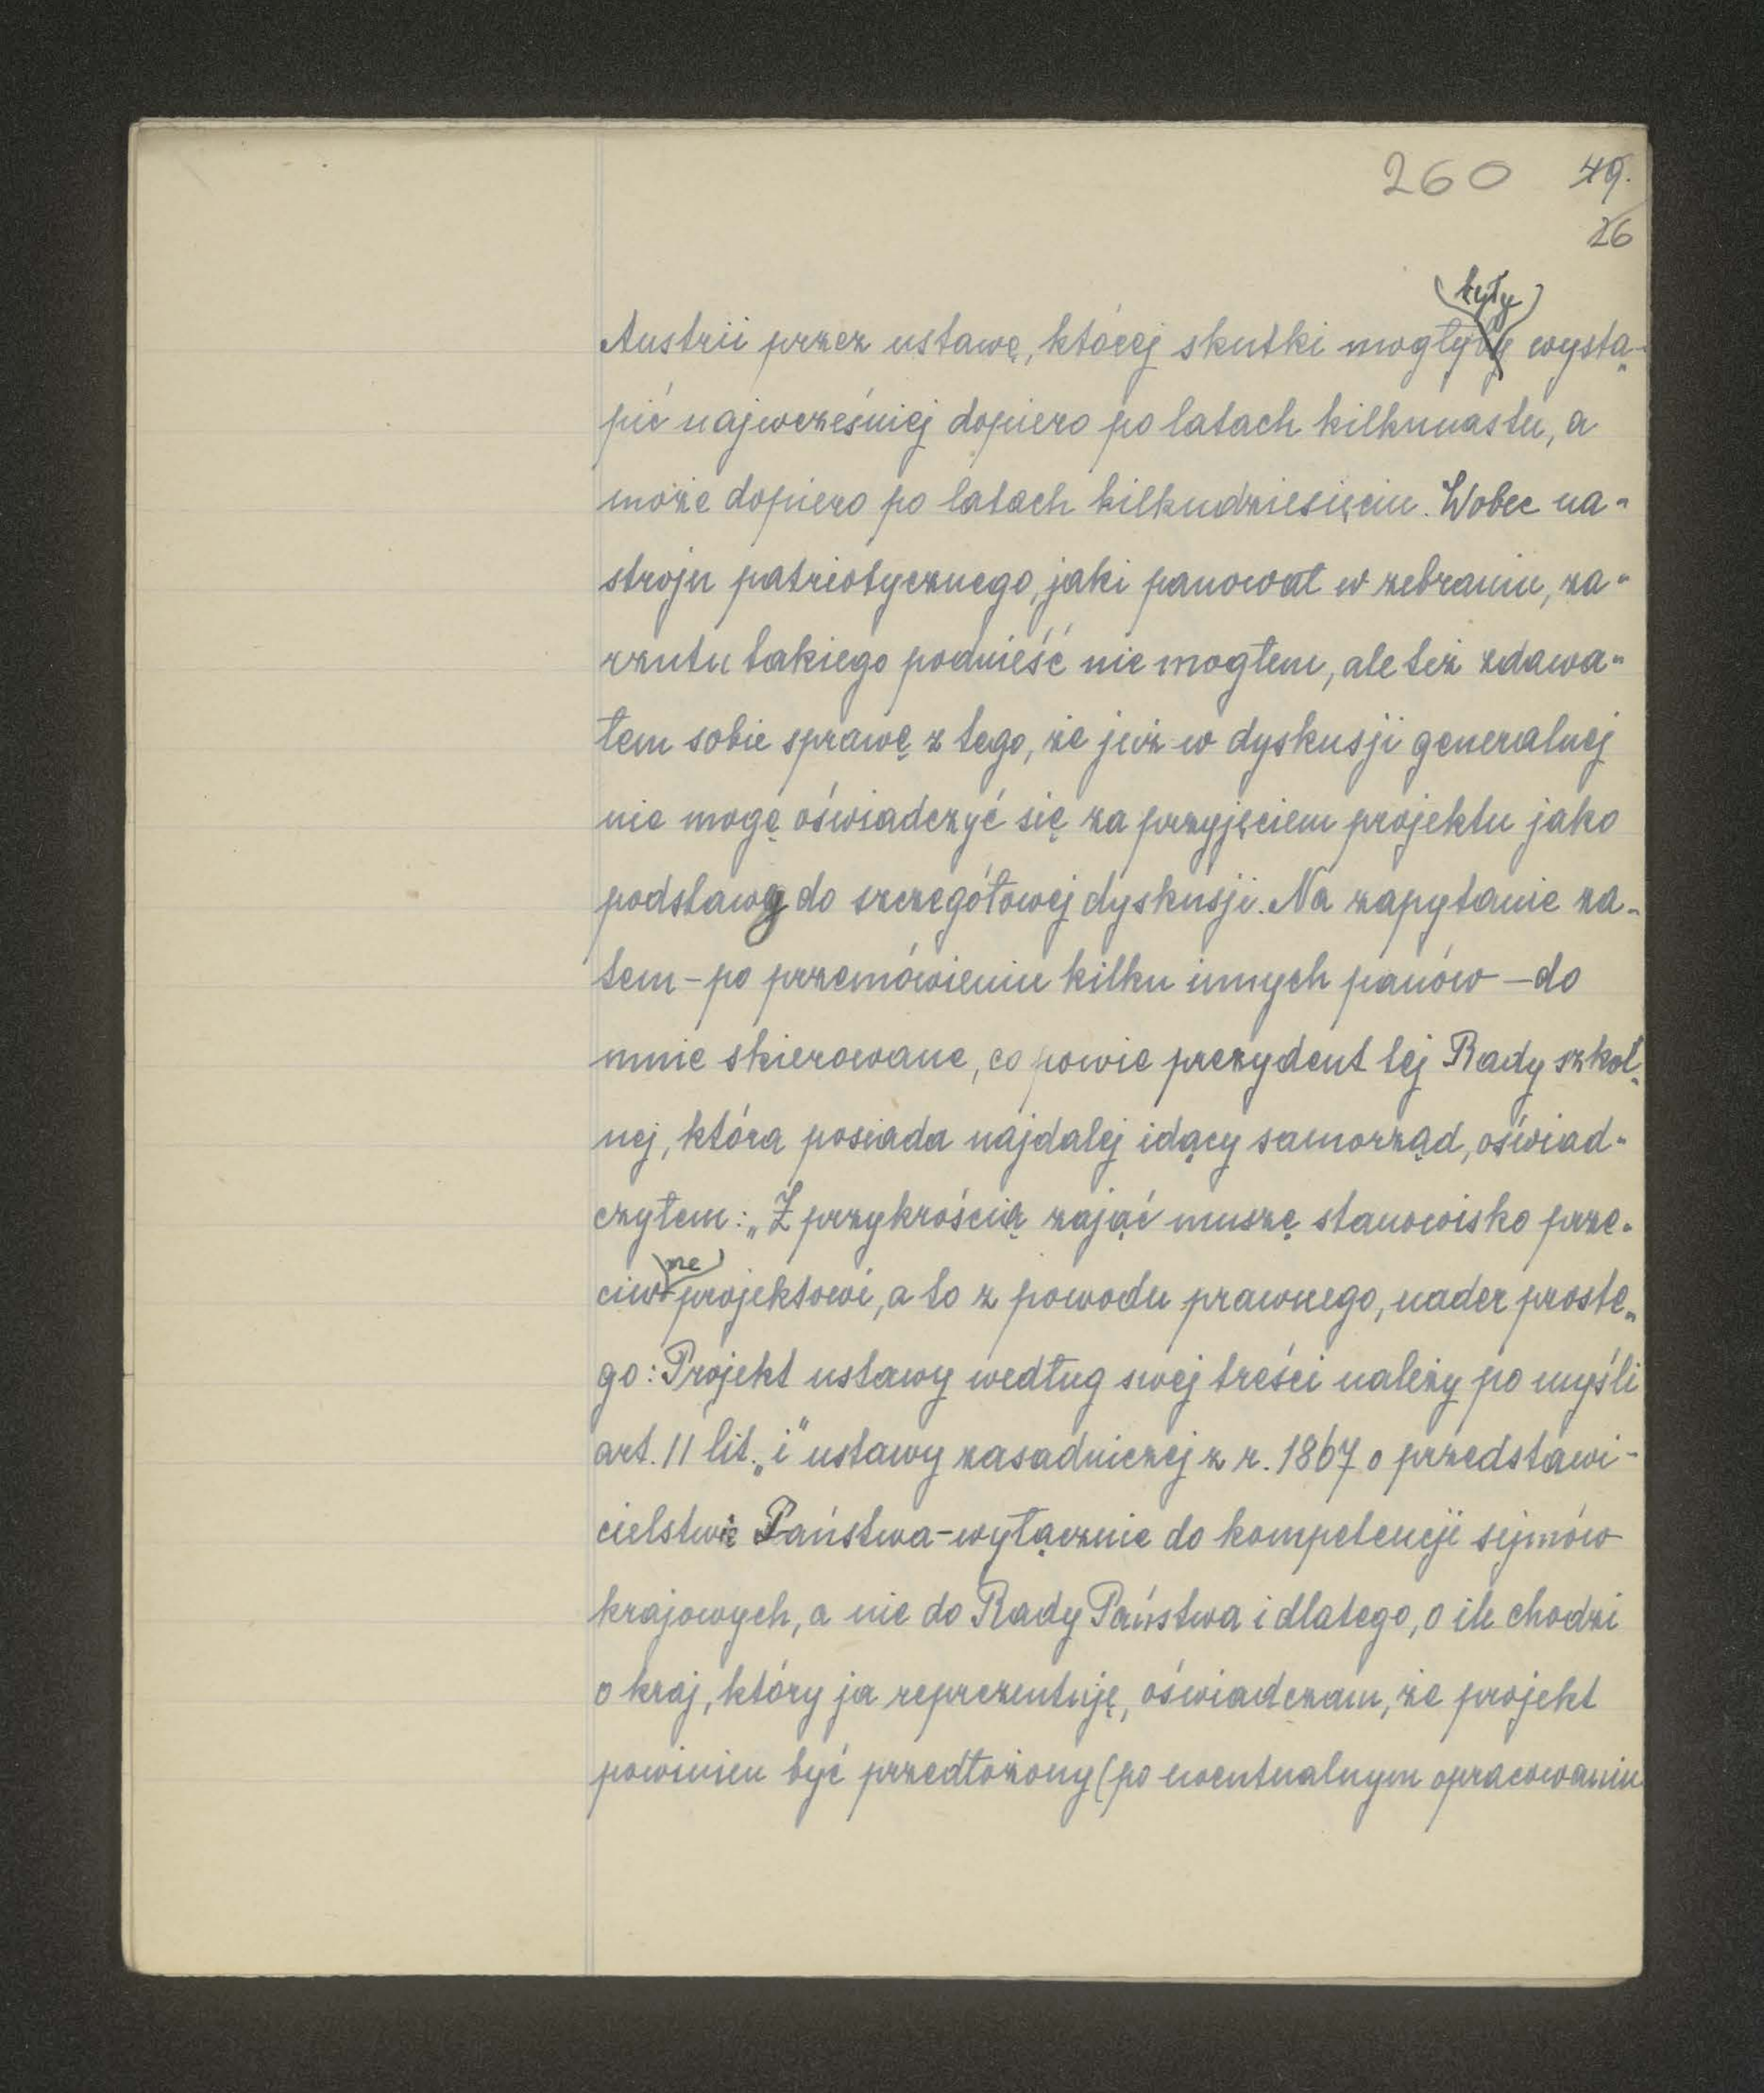 260 49.
26
(były)
Austrii przez ustawę, której skutki mogłyby wystą-
pić najwcześniej dopiero po latach kilkunastu, a
może dopiero po latach kilkudziesięciu. Wobec na-
stroju patriotycznego, jaki panował w zebraniu, za-
rzutu takiego podnieść nie mogłem, ale też zdawa-
łem sobie sprawę z tego, że już w dyskusji generalnej
nie mogę oświadczyć się za przyjęciem projektu jako
podstawy do szczegółowej dyskusji. Na zapytanie za-
tem - po przemówieniu kilku innych panów - do
mnie skierowane, co powie prezydent tej Rady szkol-
nej, która posiada najdalej idący samorząd, oświad-
czyłem: „Z przykrością zająć muszę stanowisko prze-
ne
ciw projektowi, a to z powodu prawnego, nader proste-
go: Projekt ustawy według swej treści należy po myśli
art. 11 lit. „i" ustawy zasadniczej z r. 1867 o przedstawi-
cielstwie Państwa - wyłącznie do kompetencji sejmów
krajowych, a nie do Rady Państwa i dlatego, o ile chodzi
o kraj, który ja reprezentuję, oświadczam, że projekt
powinien być przedłożony (po ewentualnym opracowaniu